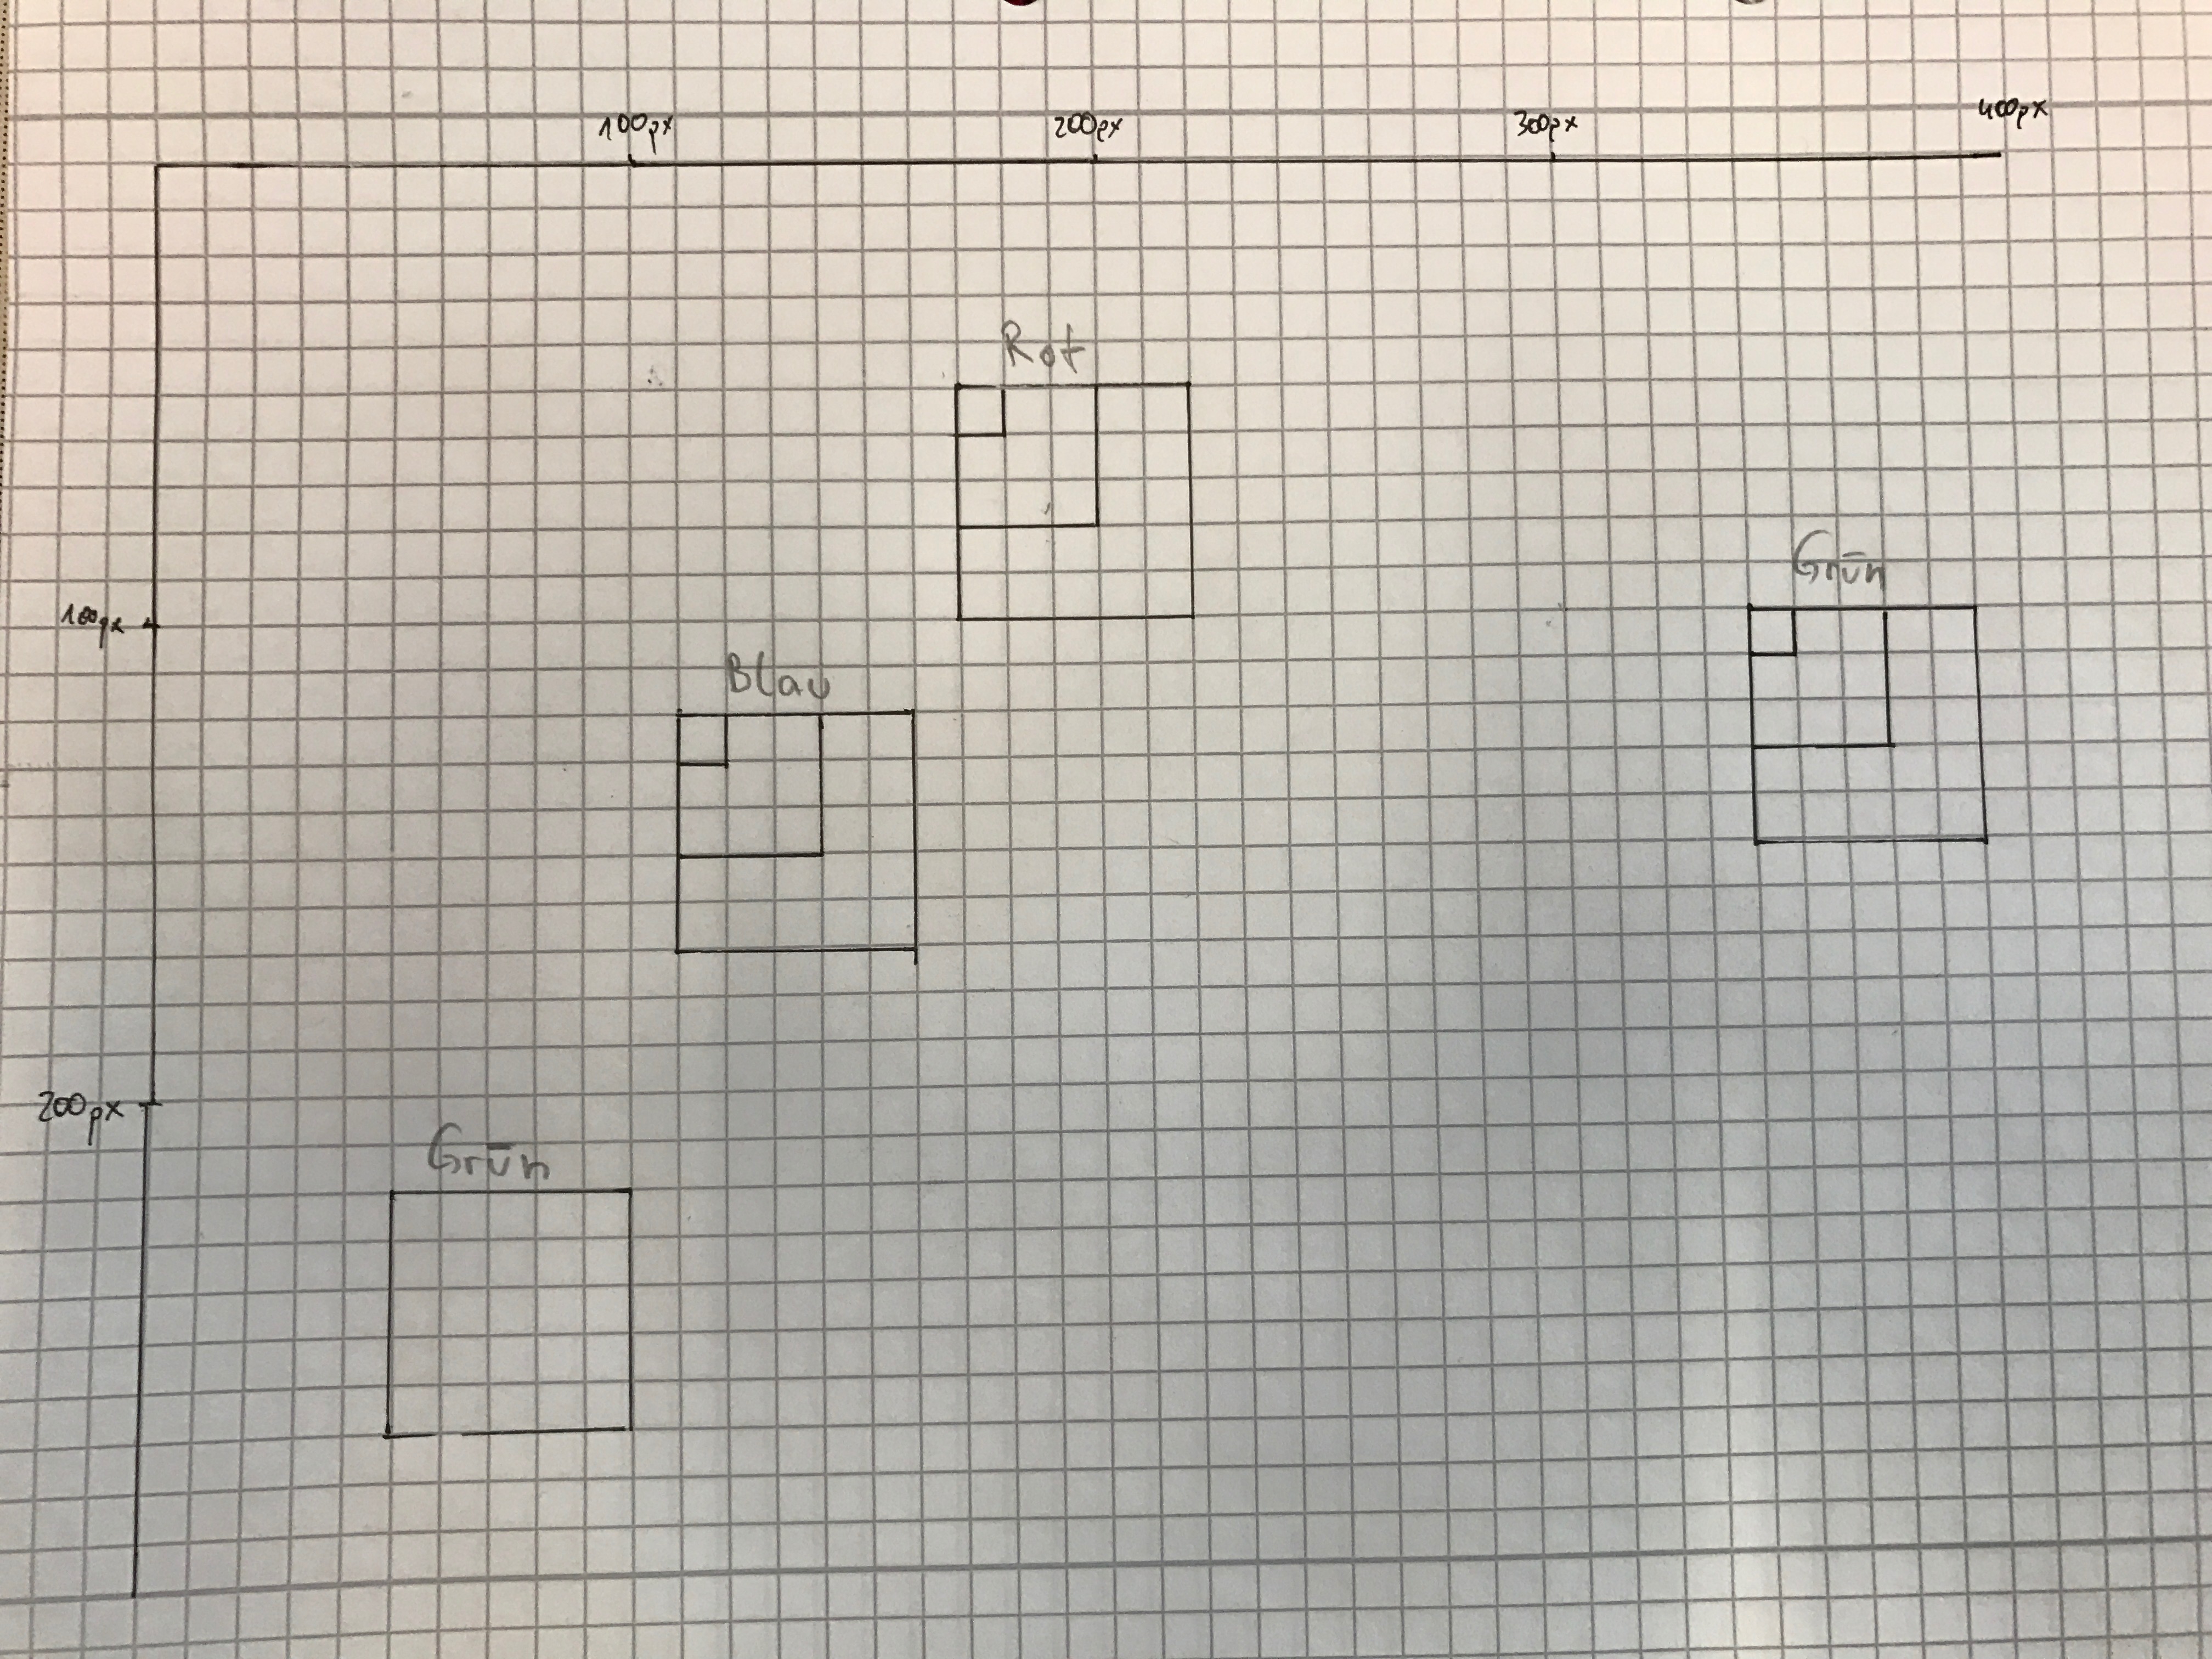 100px
200px
300px
400px
Rot
Grün
100px
Blau
200px
Grün